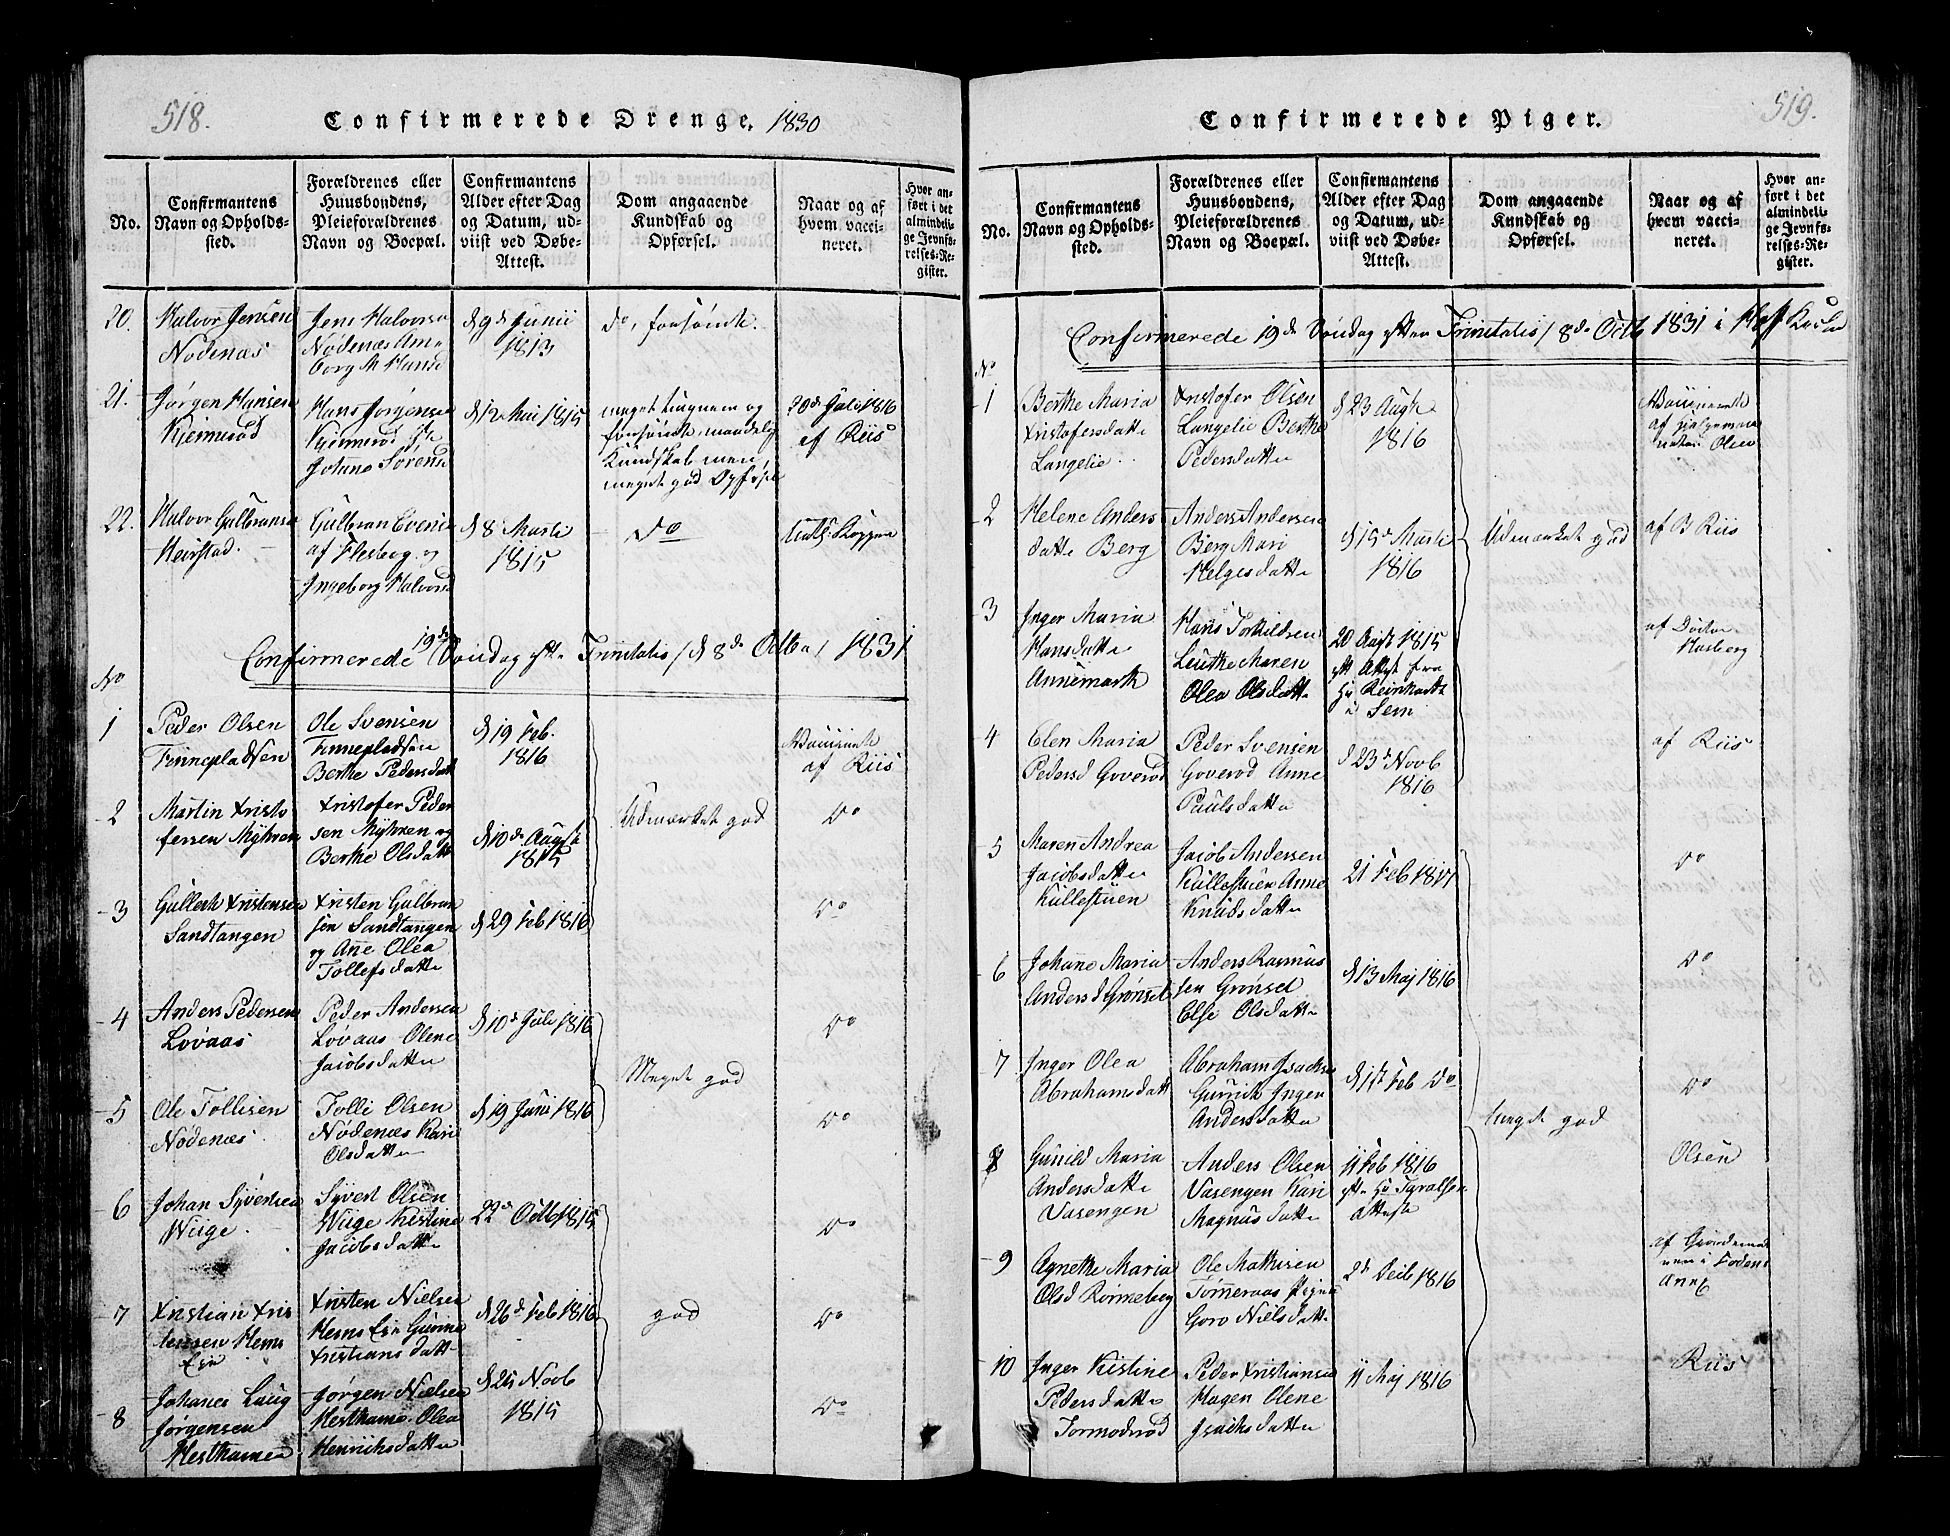 518.
Confirmerede Drenge. 1830
No.
Confirmantens
Navn og Opholds-
sted.
Forældrenes eller
Huusbondens,
Pleieforældrenes
Navn og Boepæl.
Confirmantens
Alder efter Dag
og Datum, ud-
viist ved Døbe-
Attest.
Dom angaaende
Kundskab og
Opførsel.
Naar og af
hvem vacci-
neret.
Hvor an-
ført i det
almindeli-
ge Jevnfø-
relses-Re-
gister.
20.
Halvor Jensen
Nødenæs
Jens Halvorsen
Nødenæs
9de Junii
1813
do, forsømte.
21.
Jørgen Hansen
Kjemerød
Hans Jørgensen
Kjemerød
Johane Sørensd
d 12 Mai 1815
meget lugnem og
forsømte, maadelig
Kundskab men
meget god Opførsel
20de Juli 1816
af Riis
22.
Halvor Gulbransen
Heirstad.
Gulbran Evensen
af Flesberg og
Ingeborg Halvorsd
d 8 Martii
1815
do
Koppen
Confirmerede 19de Søndag eft. Trinitatis / d 8de Octbr / 1831
No
1
Peder Olsen
Finnepladsen
Ole Svensen
Finnepladsen
Berthe Pedersdatt
d 19 Feb.
1816
Vaccinerte
af Riis
2
Martin Xristo
fersen Myhren
Xristofer Peder
sen Myhren og
Berthe Olsdatt
d 10de August
1815
Udmærket god
do
3
Gullech Xristensen
Sandtangen
Xristen Gulbran
sen Sandtangen
og Ane Olea
Tollefsdatte
d 29 Feb 1816
do
4
Anders Pedersen
Løvaas
Peder Andersen
Løvaas Olene
Jacobsdatte
d 10de Juli 1816
Meget god
do
5
Ole Tollisen
Nødenæs
Tolli Olsen
Nødenæs Kari
Olsdatte
d 19 Juni 1816
do
6
Johan Syversen
Wiige
Syvert Olsen
Wiige Kistine
Jacobsdatte
22de Octb 1815
do
7
Xristian Xris
tensen Hems
Eie
Xristen Nielsen
Hems Eie Gunne
Xristians datt
d 26de Feb 1816
god
do
8
Johanes Laug
Jørgensen
Hesthamer
Jørgen Nielsen
Hesthamr. Olea
Henrichsdatte
d 25 Novb
1815
do
519.
Confirmerede Piger.
No.
Confirmantens
Navn og Opholds-
sted.
Forældrenes eller
Huusbondens,
Pleieforældrenes
Navn og Boepæl.
Confirmantens
Alder efter Dag
og Datum, ud-
viist ved Døbe-
Attest.
Dom angaaende
Kundskab og
Opførsel.
Naar og af
hvem vacci-
neret.
Hvor an-
ført i det
almindeli-
ge Jevnfø-
relses-Re-
gister.
Confirmerede 19de Søndag efter Trinitatis / 8de Octb 1831 i Hoff Kirke
No
1
Berthe Maria
Xristofersdatte
Langelie
Xristofer Olsen
Langelie Berthe
Pedersdatte
d 23 Augt
1816
Vaccinerte
af
Olsen
2
Helene Anders
datte Berg
Anders Andersen
Berg Mari
Helgesdatte
d 15de Marti
1816
Udmærket god
af B Riis
3
Inger Maria
Hansdatte
Annemark
Hans Torkildsen
Leuthe Maren
Olea Olsdatte
20 Augt 1815
eft. Attest fra
Hr Reinhardt
i Sem
af Doctor
Hasberg
4
Elen Maria
Pedersd Goverød
Peder Svensen
Goverød Anne
Paulsdatte
d 23de Novb
1816
af Riis
5
Maren Andrea
Jacobsdatte
Kullestuen
Jacob Andersen
Kullestuen Anne
Knudsdatte
21 Feb 1817
do
6
Johane Maria
Andersd Grønset
Anders Rasmus
sen Grønset
Else Olsdatte
d 13 Maj 1816
do
7
Inger Olea
Abrahamsdatt
Abraham Isachs
Inger
Andersdatte
d 1ste Feb do
Meget god
do
8
Gunild Maria
Andersdatte
Vasengen
Anders Olsen
Vasengen Kari
Magnusdatte
11 Feb 1816
eft. Hr
Attest
Olsen
9
Agnethe Maria
Olsd Ronneberg
Ole Mathisen
Tømeraas
Goro Nielsdatt.
2de Decb 1816
af
Anne
10
Inger Kistine
Pedersdatte
Tormodrød
Peder Xristiansen
Hagen Olene
Isachsdatte
11 Maj 1816
Riis